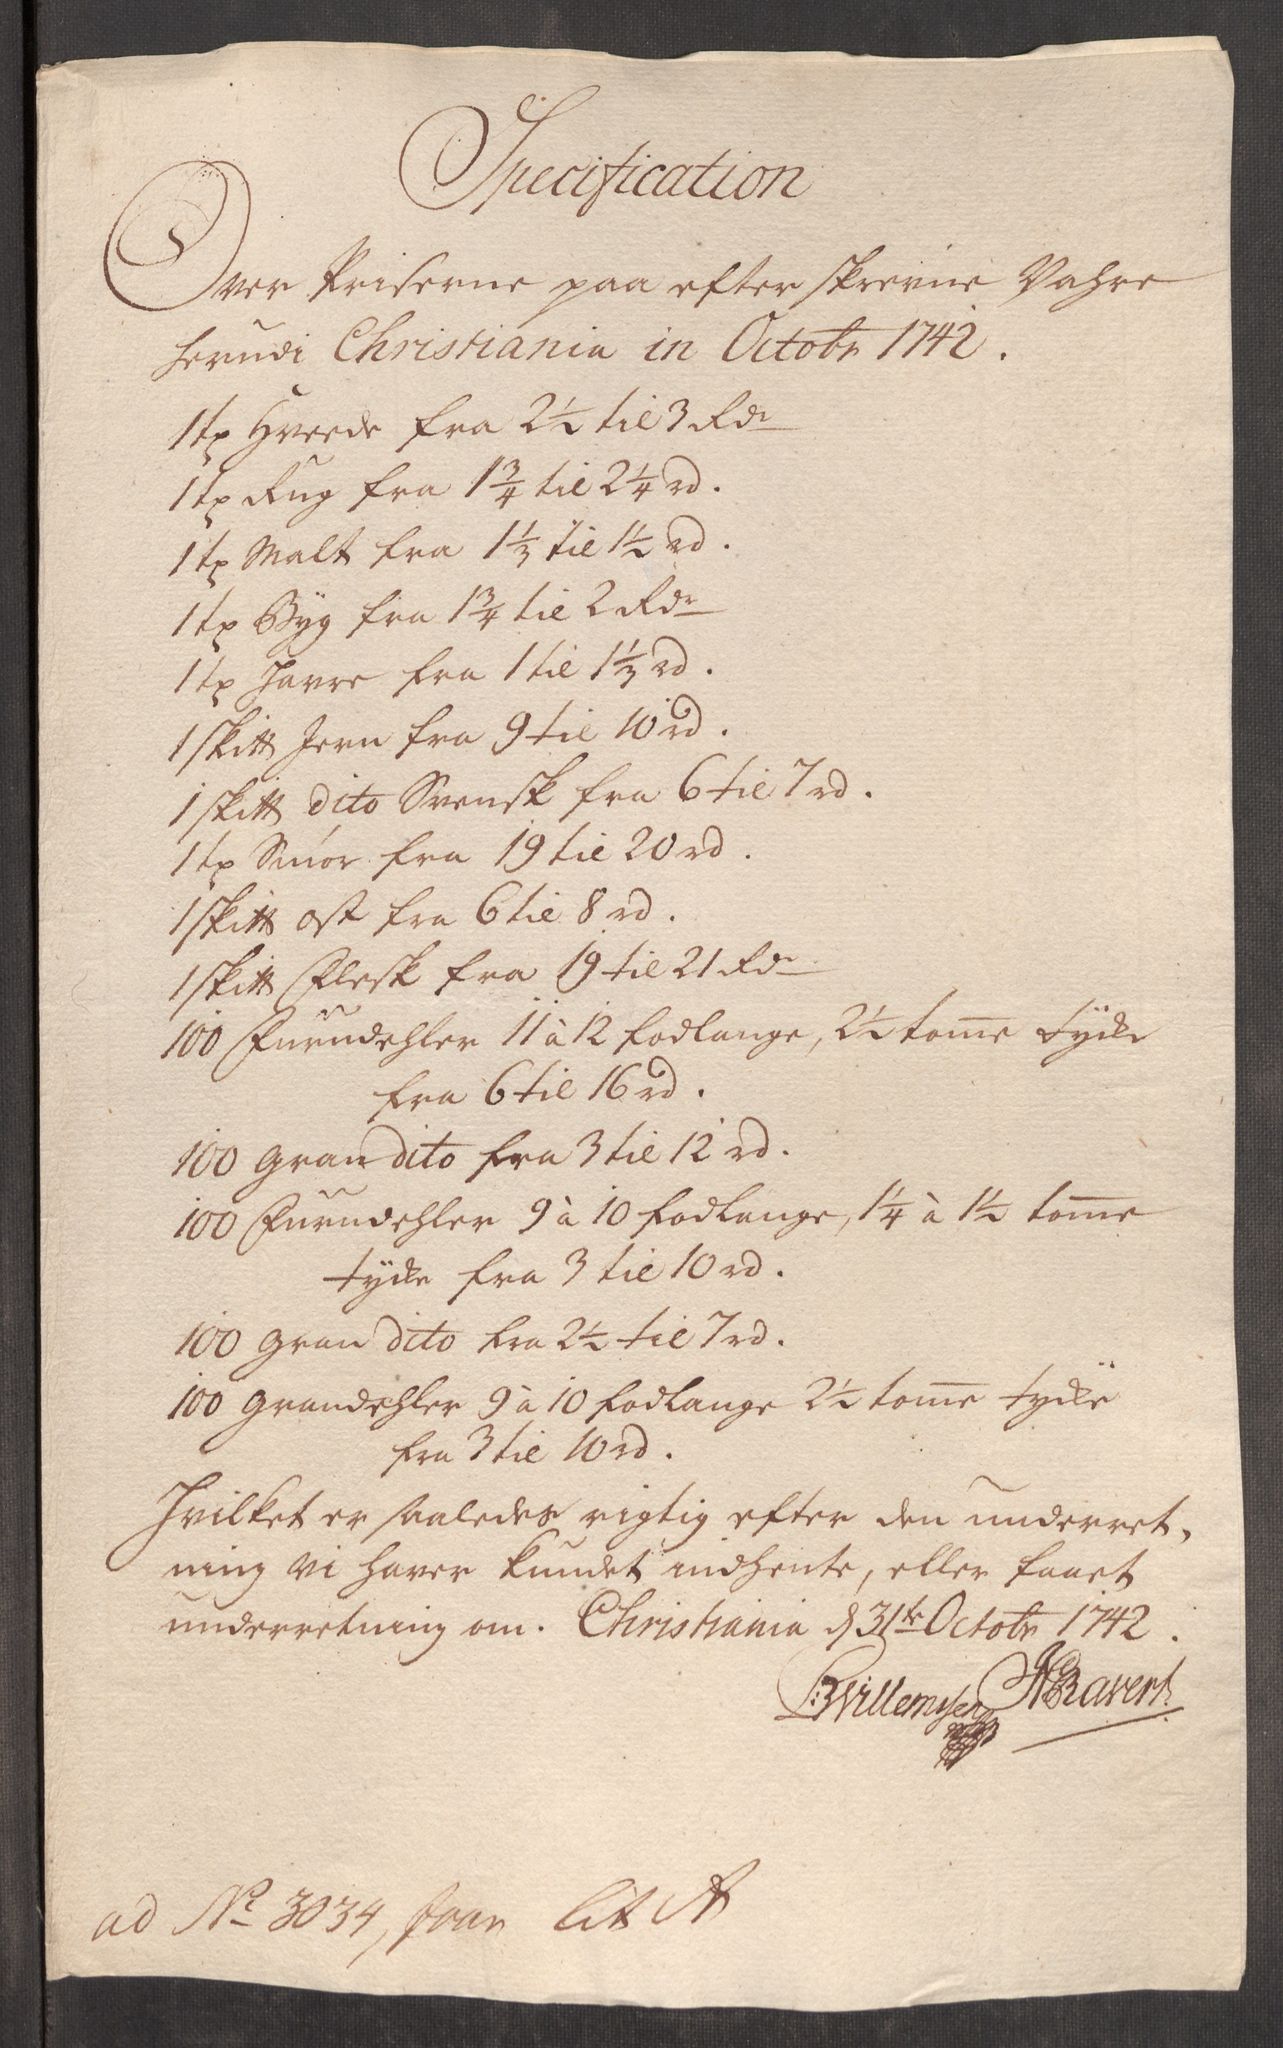 Specification
Over Priserne paa efter skrevne Vahre
herudi Christiania in Octobr 1742.
1 tr Hvede fra 2½ til 3 Rdr
1 tr Rug fra 1¾ til 2¼ rd.
1 tr Malt fra 1⅓ til 1½ rd.
1 tr Byg fra 1¾ til 2 Rdr
1 tr Havre fra 1 til 1⅓ rd.
1 skit℔ Jern fra 9 til 10 rd.
1 skit℔ dito Svensk fra 6 til 7 rd.
1 tr Smór fra 19 til 20 rd.
1 skit℔ ost fra 6 til 8 rd.
1 skit℔ Flesk fra 19 til 21 Rdr
100 Furudehler 11 à 12 fodlange, 2½ tom̅e tÿcke
fra 6 til 16 rd.
100 gran dito fra 3 til 12 rd.
100 Furudehler 9 à 10 fodlange, 1¼ à 1½ tom̅e
tÿcke fra 3 til 10 rd.
100 gran dito fra 2½ til 7 rd.
100 grandehler 9 à 10 fodlange 2½ tom̅e tycke
fra 3 til 10 rd.
Hvilket er saaledes rigtig efter den underret,
ning vi haver kundet indhente, eller faaet
underretning om. Christiania d 31te Octobr 1742.
BWillemsen Ravert
ad No 3034, Lit A